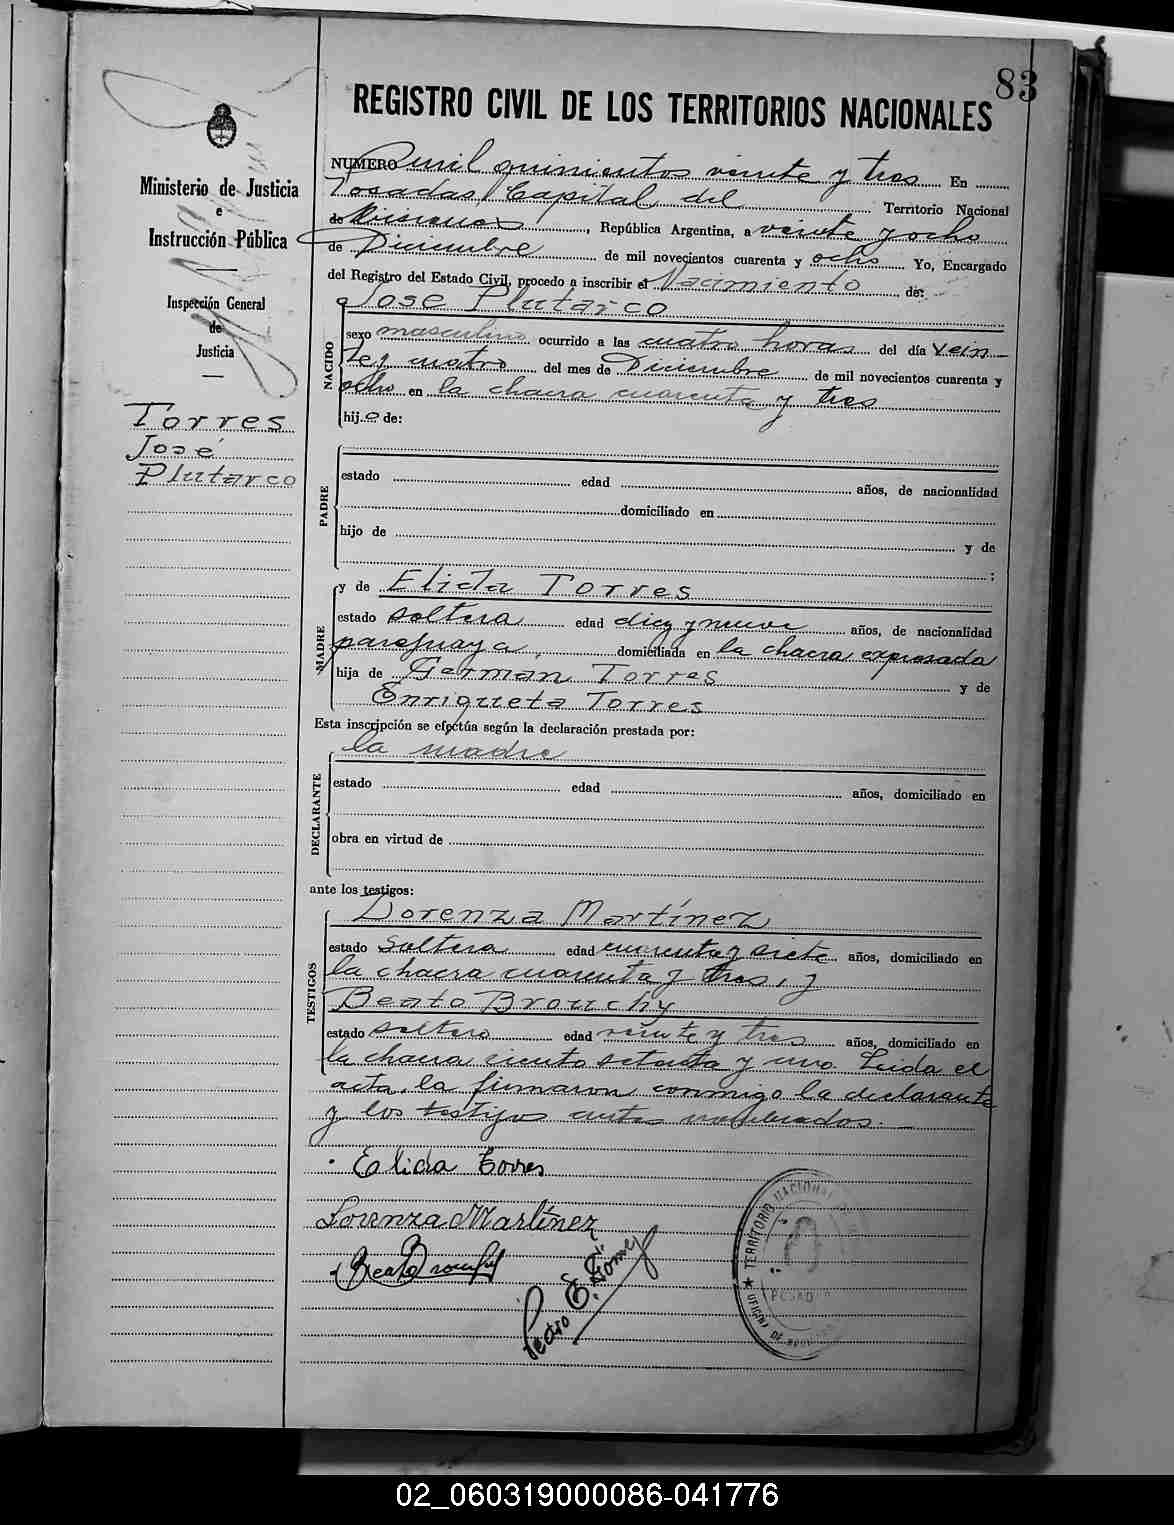 83
REGISTRO CIVIL DE LOS TERRITORIOS NACIONALES
Ministerio de Justicia
e
Instrucción Pública
Inspección General
de
Justicia
Torres
José
Plutarco
NUMERO mil quinientos veinte y tres En
Posadas Capital del Territorio Nacional
de Misiones, República Argentina, a veinte y ocho
de Diciembre de mil novecientos cuarenta y ocho Yo, Encargado
del Registro del Estado Civil, procedo a inscribir el Nacimiento de:
José Plutarco
NACIDO
sexo masculino ocurrido a las cuatro horas del día vein-
te y cuatro del mes de Diciembre de mil novecientos cuarenta y
ocho en la chacra cuarenta y tres
hijo de:
PADRE
estado edad años, de nacionalidad
domiciliado en
hijo de y de
;
MADRE
y de Elida Torres
estado soltera edad diez y nueve años, de nacionalidad
paraguaya, domiciliada en la chacra expresada
hija de Germán Torres y de
Enriqueta Torres
Esta inscripción se efectúa según la declaración prestada por:
la madre
DECLARANTE
estado edad años, domiciliado en
obra en virtud de
ante los testigos:
TESTIGOS
Lorenza Martínez
estado soltera edad cuarenta y siete años, domiciliado en
la chacra cuarenta y tres, y
Beato Brouchy
estado soltero edad veinte y tres años, domiciliado en
la chacra ciento setenta y uno. Leida el
acta, la firmaron conmigo la declarante
y los testigos antes nombrados.-
Elida Torres
Lorenza Martínez
Beato Brouchy
Pedro E. Gómez
TERRITORIO NACIONAL
POSADAS
OFICINA DE
02_060319000086-041776